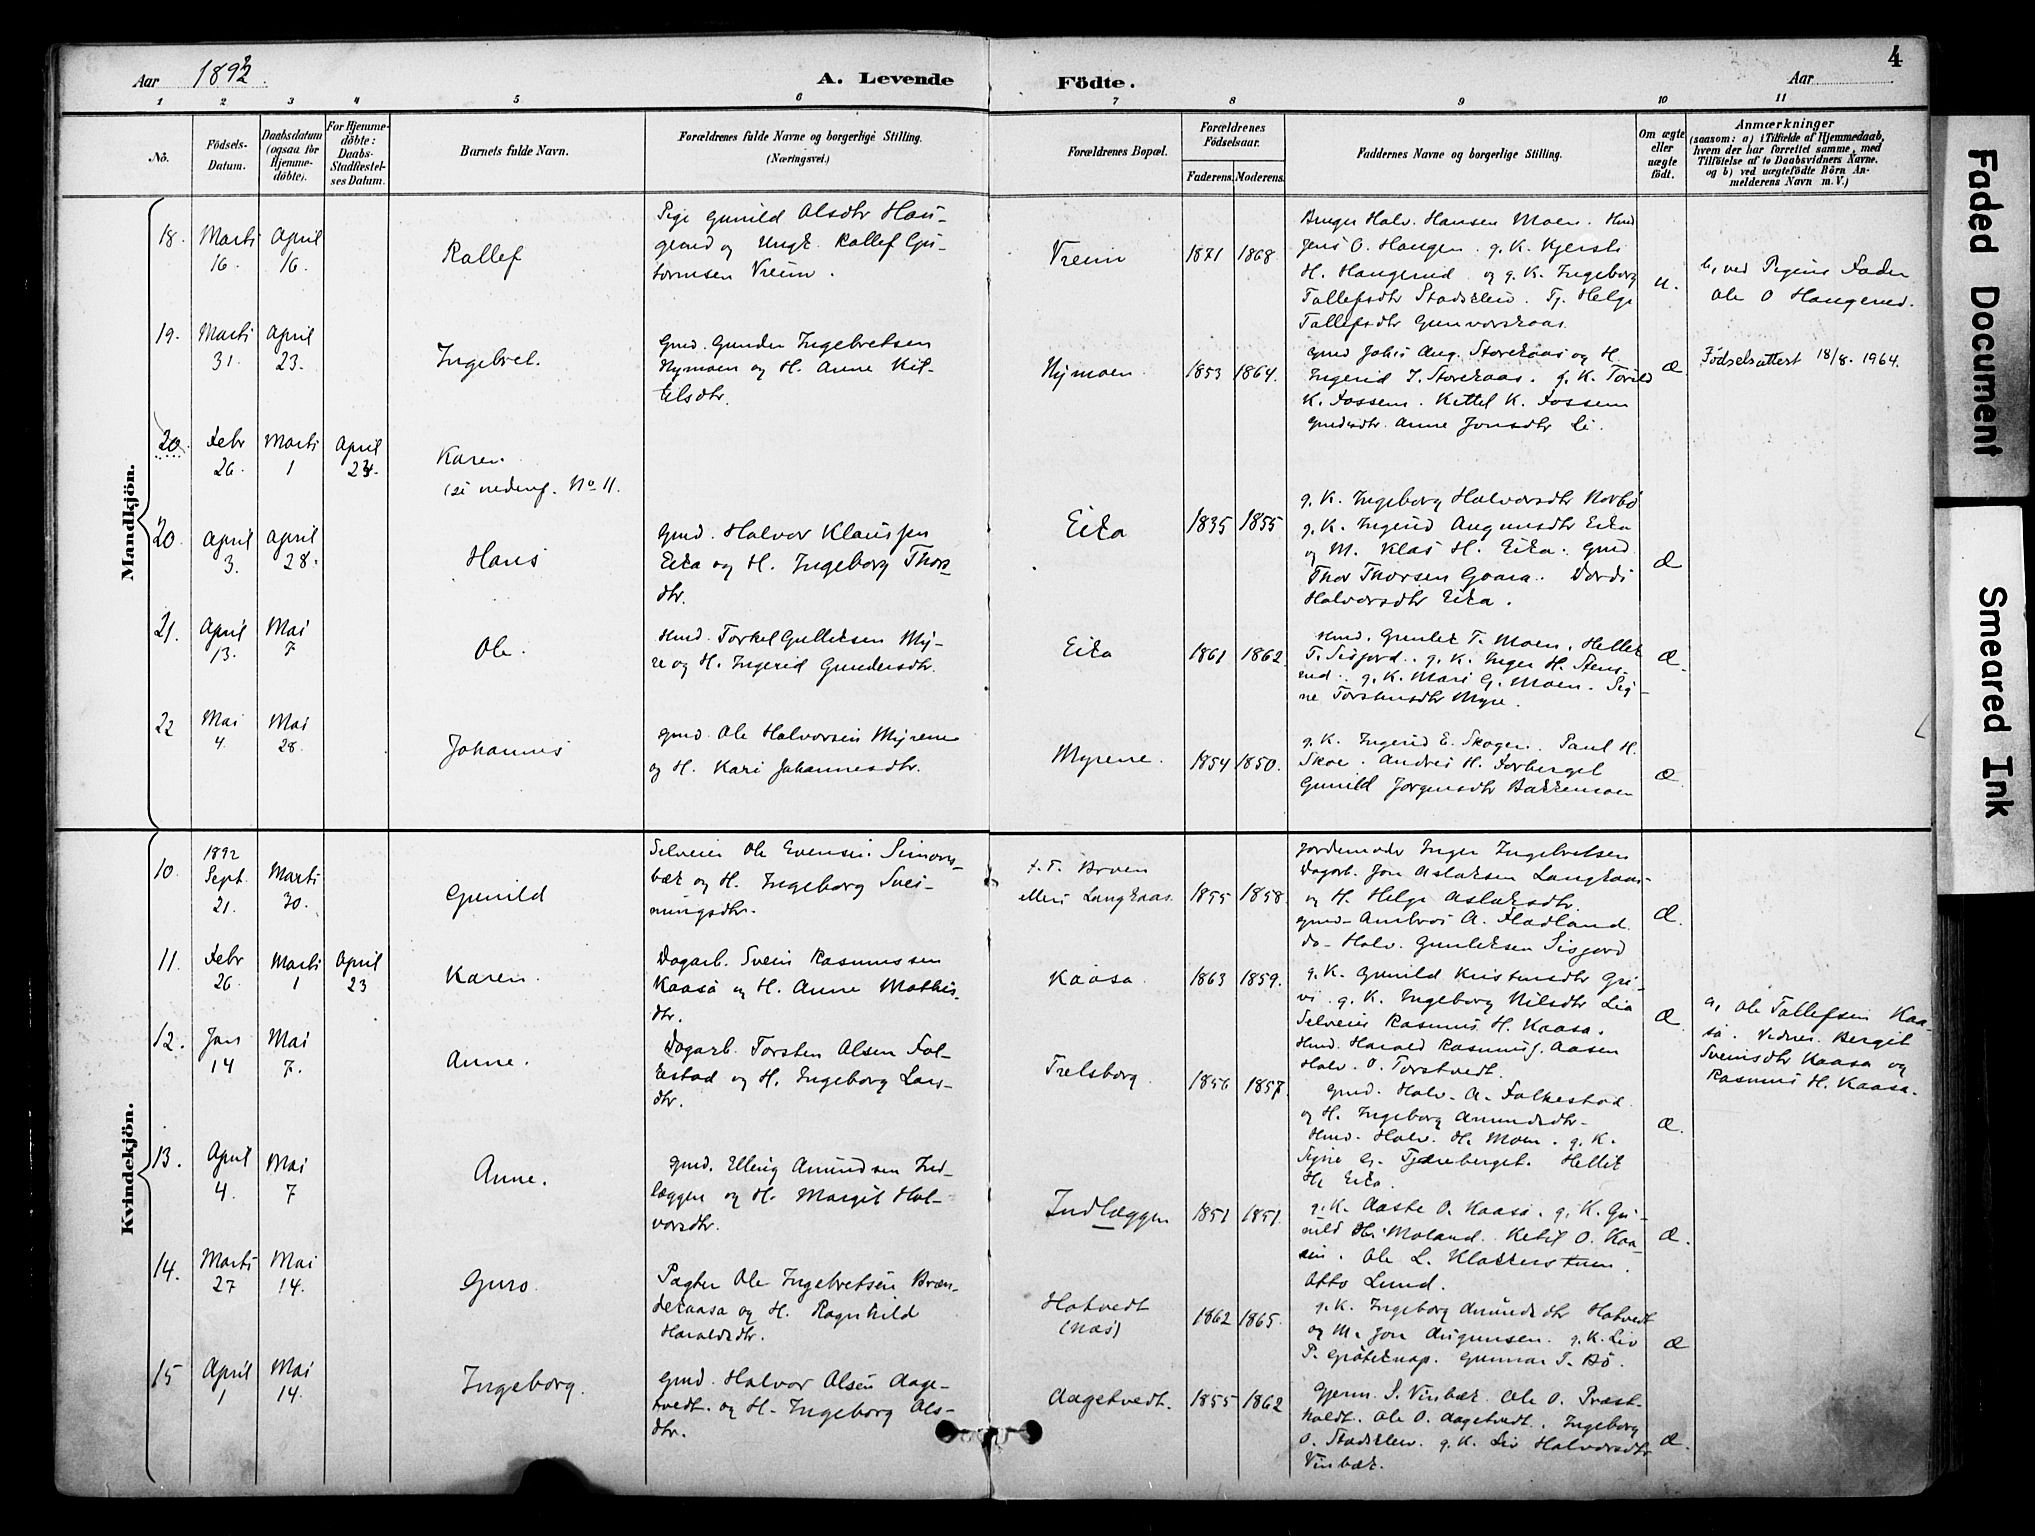 Aar 1893.
A. Levende Födte.
Aar
4
1 2 3 4 5 6 7 8 9 10 11
No.
Födsels-Datum.
Daabsdatum (ogsaa for Hjemme-döbte).
For Hjemme-döbte: Daabs-Stadfæstel-ses Datum.
Barnets fulde Navn.
Forældrenes fulde Navne og borgerlige Stilling.
(Næringsvei.)
Forældrenes Bopæl.
Forældrenes Födselsaar.
Faderens. Moderens.
Faddernes Navne og borgerlige Stilling.
Om ægte eller uægte födt.
Anmærkninger
(saasom: a) i Tilfælde af Hjemmedaab, hvem der har forrettet samme, med Tilföielse af to Daabsvidners Navne. og b) ved uægtefödte Börn An-melderens Navn m. V.)
Mandkjön.
18. Marts 16. April 16.
Rollef
Pige Gunild Olsdtr Hau-
gerud og Ungk. Rollef Gu-
tormsen Vreim.
Vreim
1871 1868
Bruger Halv. Hansen Moen. Hmd
Jens O. Haugen. g. K. Kjersti
H. Haugerud og g. K. Ingeborg
Tollefsdtr Stadskleiv. Tj. Helge
Tollefsdtr Gunvorskaas.
u.
b, ved Pigens Fader
Ole O Haugerud.
19. Marts 31. April 23.
Ingebret.
Gmd. Gunder Ingebretsen
Nymoen og H. Anne Kit-
tilsdtr.
Nymoen.
1853 1864.
Gmd Johs Aug. Storekaas og H.
Ingerid J. Storekaas. g. K. Torild
K. Fossem. Kittel K. Fossem
Gmdsdtr. Anne Jonsdtr Li.
Æ
Födselsattest 18/8. 1964.
20. Febr 26. Marts 1 April 23.
Karen.
(se nedenf. No 11.
20. April 3. April 28.
Hans
Gmd. Halvor Klaussen
Eika og H. Ingeborg Thors-
dtr.
Eika
1835 1855
g. K. Ingeborg Halvorsdtr Norbö
g. K. Ingerid Augunsdtr Eika
og M. Klas H. Eika. Gmd.
Thor Thorsen Gaara. Dordi
Halvorsdtr Eika.
Æ
21. April 13. Mai 7
Ole.
Hmd. Torkel Gulliksen My-
re og H. Ingerid Gundersdtr.
Eika
1861 1862
Hmd. Gunlek T. Moen. Hellek
T. Sisjord. g. K. Inger H. Stens-
rud. g. K. Mari G. Moen. Sig-
ne Torstensdtr Myre.
Æ.
22 Mai 4. Mai 28.
Johannes
Gmd. Ole Halvorsen Myrene
og H. Kari Johannesdtr.
Myrene.
1854 1850.
g. K. Ingerid E. Skogen. Paul H.
Skoe. Andres H. Forberget
Gunild Jörgensdtr Bakkemoen
Æ
Kvindekjön.
10. 1892 Sept. 21. Marts 30.
Gunild
Selveier Ole Evensen Simons-
bæk og H. Ingeborg Svei-
nungsdtr.
f. T. Broen
ellers Langkaas.
1855 1858
Jordemoder Inger Ingebretsen
Dagarb. Jon Aslaksen Langkaas
og H. Helge Aslaksdtr.
Gmd. Ambros A. Fladland.
do. Halv. Gunleksen Sisjord
Æ.
11. Febr 26. Marts 1 April 23
Karen.
Dagarb. Svein Rasmussen
Kaasa og H. Anne Mathis-
dtr.
Kaasa
1863 1859.
g. K. Gunild Kristensdtr Gri-
vi. g. K. Ingeborg Nilsdtr Lia
Selveier Rasmus H. Kaasa.
Hmd. Harald Rasmuss. Aasen
Halv. O. Torstvedt.
Æ.
a, Ole Tollefsen Kaa-
sa. Vidner. Bergit
Sveinsdtr Kaasa og
Rasmus H. Kaasa.
12. Jan 14 Mai 7.
Anne.
Dagarb. Torsten Olsen Fol-
kestad og H. Ingeborg Lars-
dtr.
Trelsborg.
1856 1857.
Gmd. Halv. A. Folkestad.
og H. Ingeborg Amundsdtr.
Hmd. Halv. H. Moen. g. K.
Signe G. Tjæreberget. Hellik
H. Eika.
Æ.
13. April 4. Mai 7
Anne.
Gmd. Elling Amundsen Ind-
læggen og H. Margit Hal-
vorsdtr.
Indlæggen
1851 1851.
g. K. Aaste O. Kaasa. g. K. Gu-
nild H. Moland. Ketil O. Kaa-
sen. Ole L. Klokkerstuen.
Otto Lund.
Æ.
14. Marts 27 Mai 14.
Guro.
Pagter Ole Ingebretsen Bræn-
dekaasa og H. Ragnhild
Haraldsdtr.
Hotvedt
(Næs)
1862 1865.
g. K. Ingeborg Amundsdtr Hotvedt
og M. Jon Augunsen. g. K. Liv
P. Grötknap. Gunnar T. Bö.
Æ
15 April 1 Mai 14.
Ingeborg.
Gmd. Halvor Olsen Aage-
tvedt. og H. Ingeborg Ols-
dtr.
Aagetvedt.
1855 1862
Gjerm. S. Vinbæk. Ole O. Præst-
holdt. Ole O. Aagetvedt. Ingeborg
O. Stadskleiv. g. K. Liv Halvorsdtr
Vinbæk.
Æ.
Faded Document
Smeared Ink